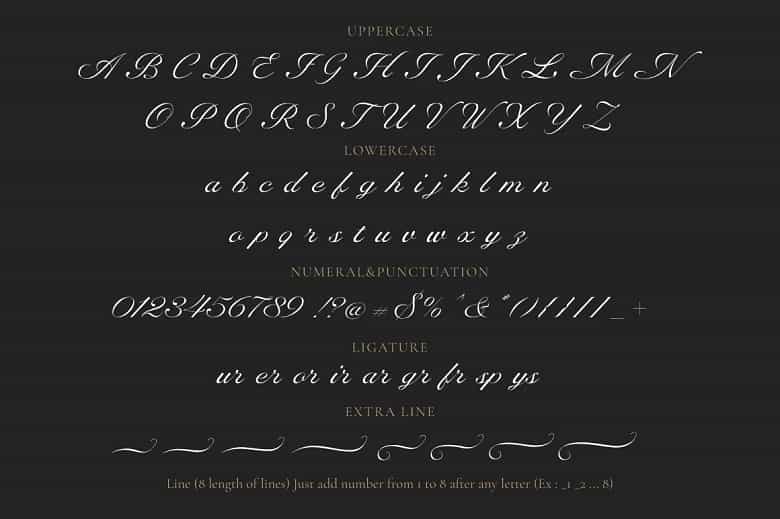 UPPERCASE
A B C D E F G H I J K L M N
O P Q R S T U V W X Y Z
LOWERCASE
a b c d e f g h i j k l m n
o p q r s t u v w x y z
NUMERAL&PUNCTUATION
0123456789 !?@#$%^&*(){}[]_+
LIGATURE
ur er or ir ar gr fr sp ys
EXTRA LINE
Line (8 length of lines) Just add number from 1 to 8 after any letter (Ex : _1 _2 ... 8)